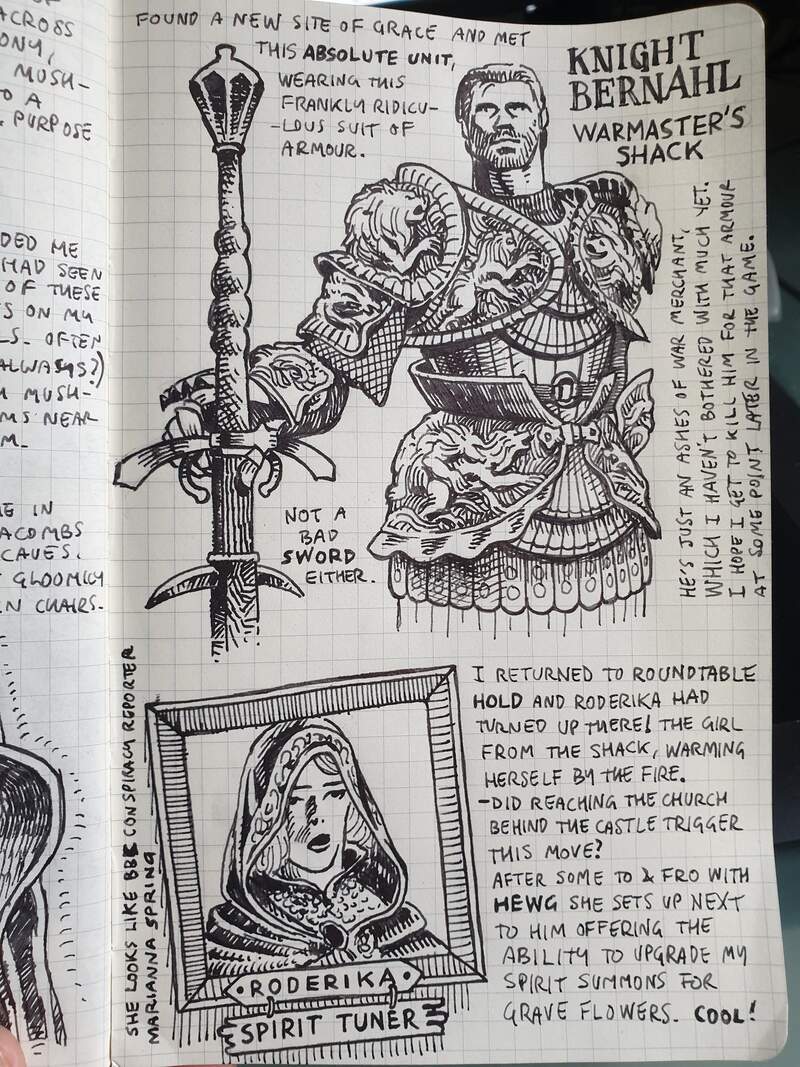 ACROSS
MUSH-
O A
PURPOSE
DED ME
HAD SEEN
OF THESE
S ON MY
LS. OFTEN
ALWAYS?)
MUSH-
MS NEAR
M.
E IN
ACOMBS
CAVES.
GLOOMILY
N CHAIRS.
FOUND A NEW SITE OF GRACE AND MET
THIS ABSOLUTE UNIT,
WEARING THIS
FRANKLY RIDICU-
-LOUS SUIT OF
ARMOUR.
KNIGHT
BERNAHL
WARMASTER'S
SHACK
HE'S JUST AN ASHES OF WAR MERCHANT,
WHICH I HAVEN'T BOTHERED WITH MUCH YET.
I HOPE I GET TO KILL HIM FOR THAT ARMOUR
AT SOME POINT LATER IN THE GAME.
NOT A
BAD
SWORD
EITHER.
I RETURNED TO ROUNDTABLE
HOLD AND RODERIKA HAD
TURNED UP THERE! THE GIRL
FROM THE SHACK, WARMING
HERSELF BY THE FIRE.
-DID REACHING THE CHURCH
BEHIND THE CASTLE TRIGGER
THIS MOVE?
AFTER SOME TO & FRO WITH
HEWG SHE SETS UP NEXT
TO HIM OFFERING THE
ABILITY TO UPGRADE MY
SPIRIT SUMMONS FOR
GRAVE FLOWERS. COOL!
SHE LOOKS LIKE BBC CONSPIRACY REPORTER
MARIANNA SPRING
RODERIKA
SPIRIT TUNER